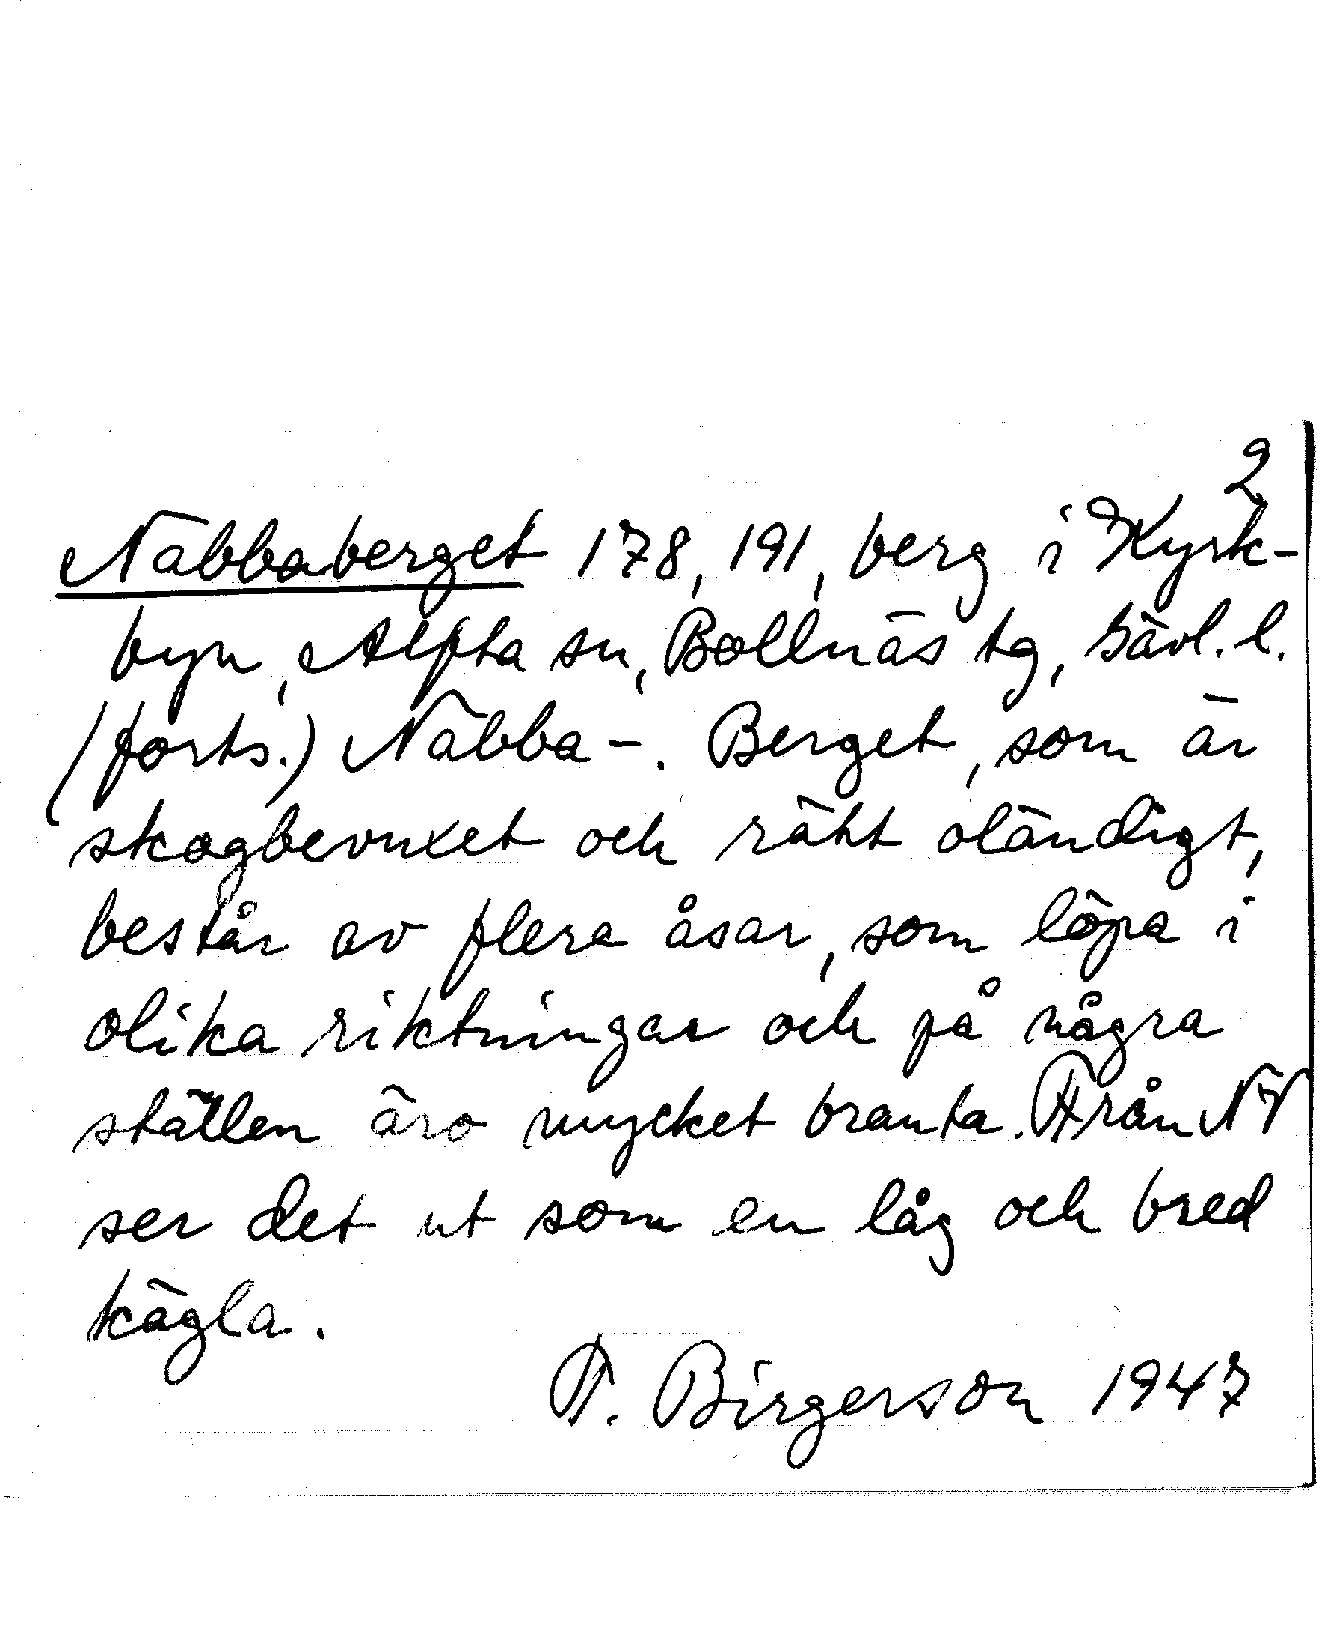 2
Näbbaberget 178, 191, berg i Kyrk-
byn, Alfta sn, Bollnäs tg, Gävl. l.
(forts.) Näbba-. Berget, som är
skogbevuxet och rätt oländigt,
består av flera åsar, som löpa i
olika riktningar och på några
ställen äro mycket branta. Från NV
ser det ut som en låg och bred
kägla.
F. Birgerson 1947